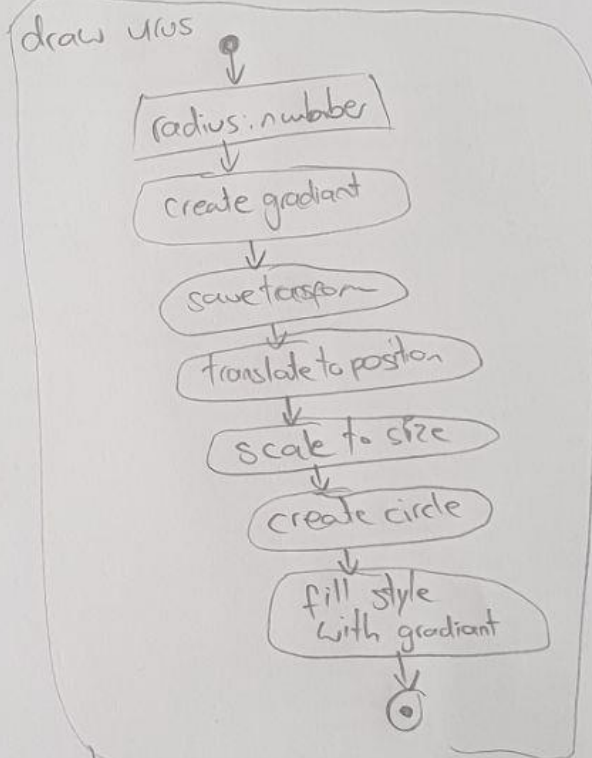 draw virus
radius: number
create gradiant
save transform
translate to position
scale to size
create circle
fill style
with gradiant